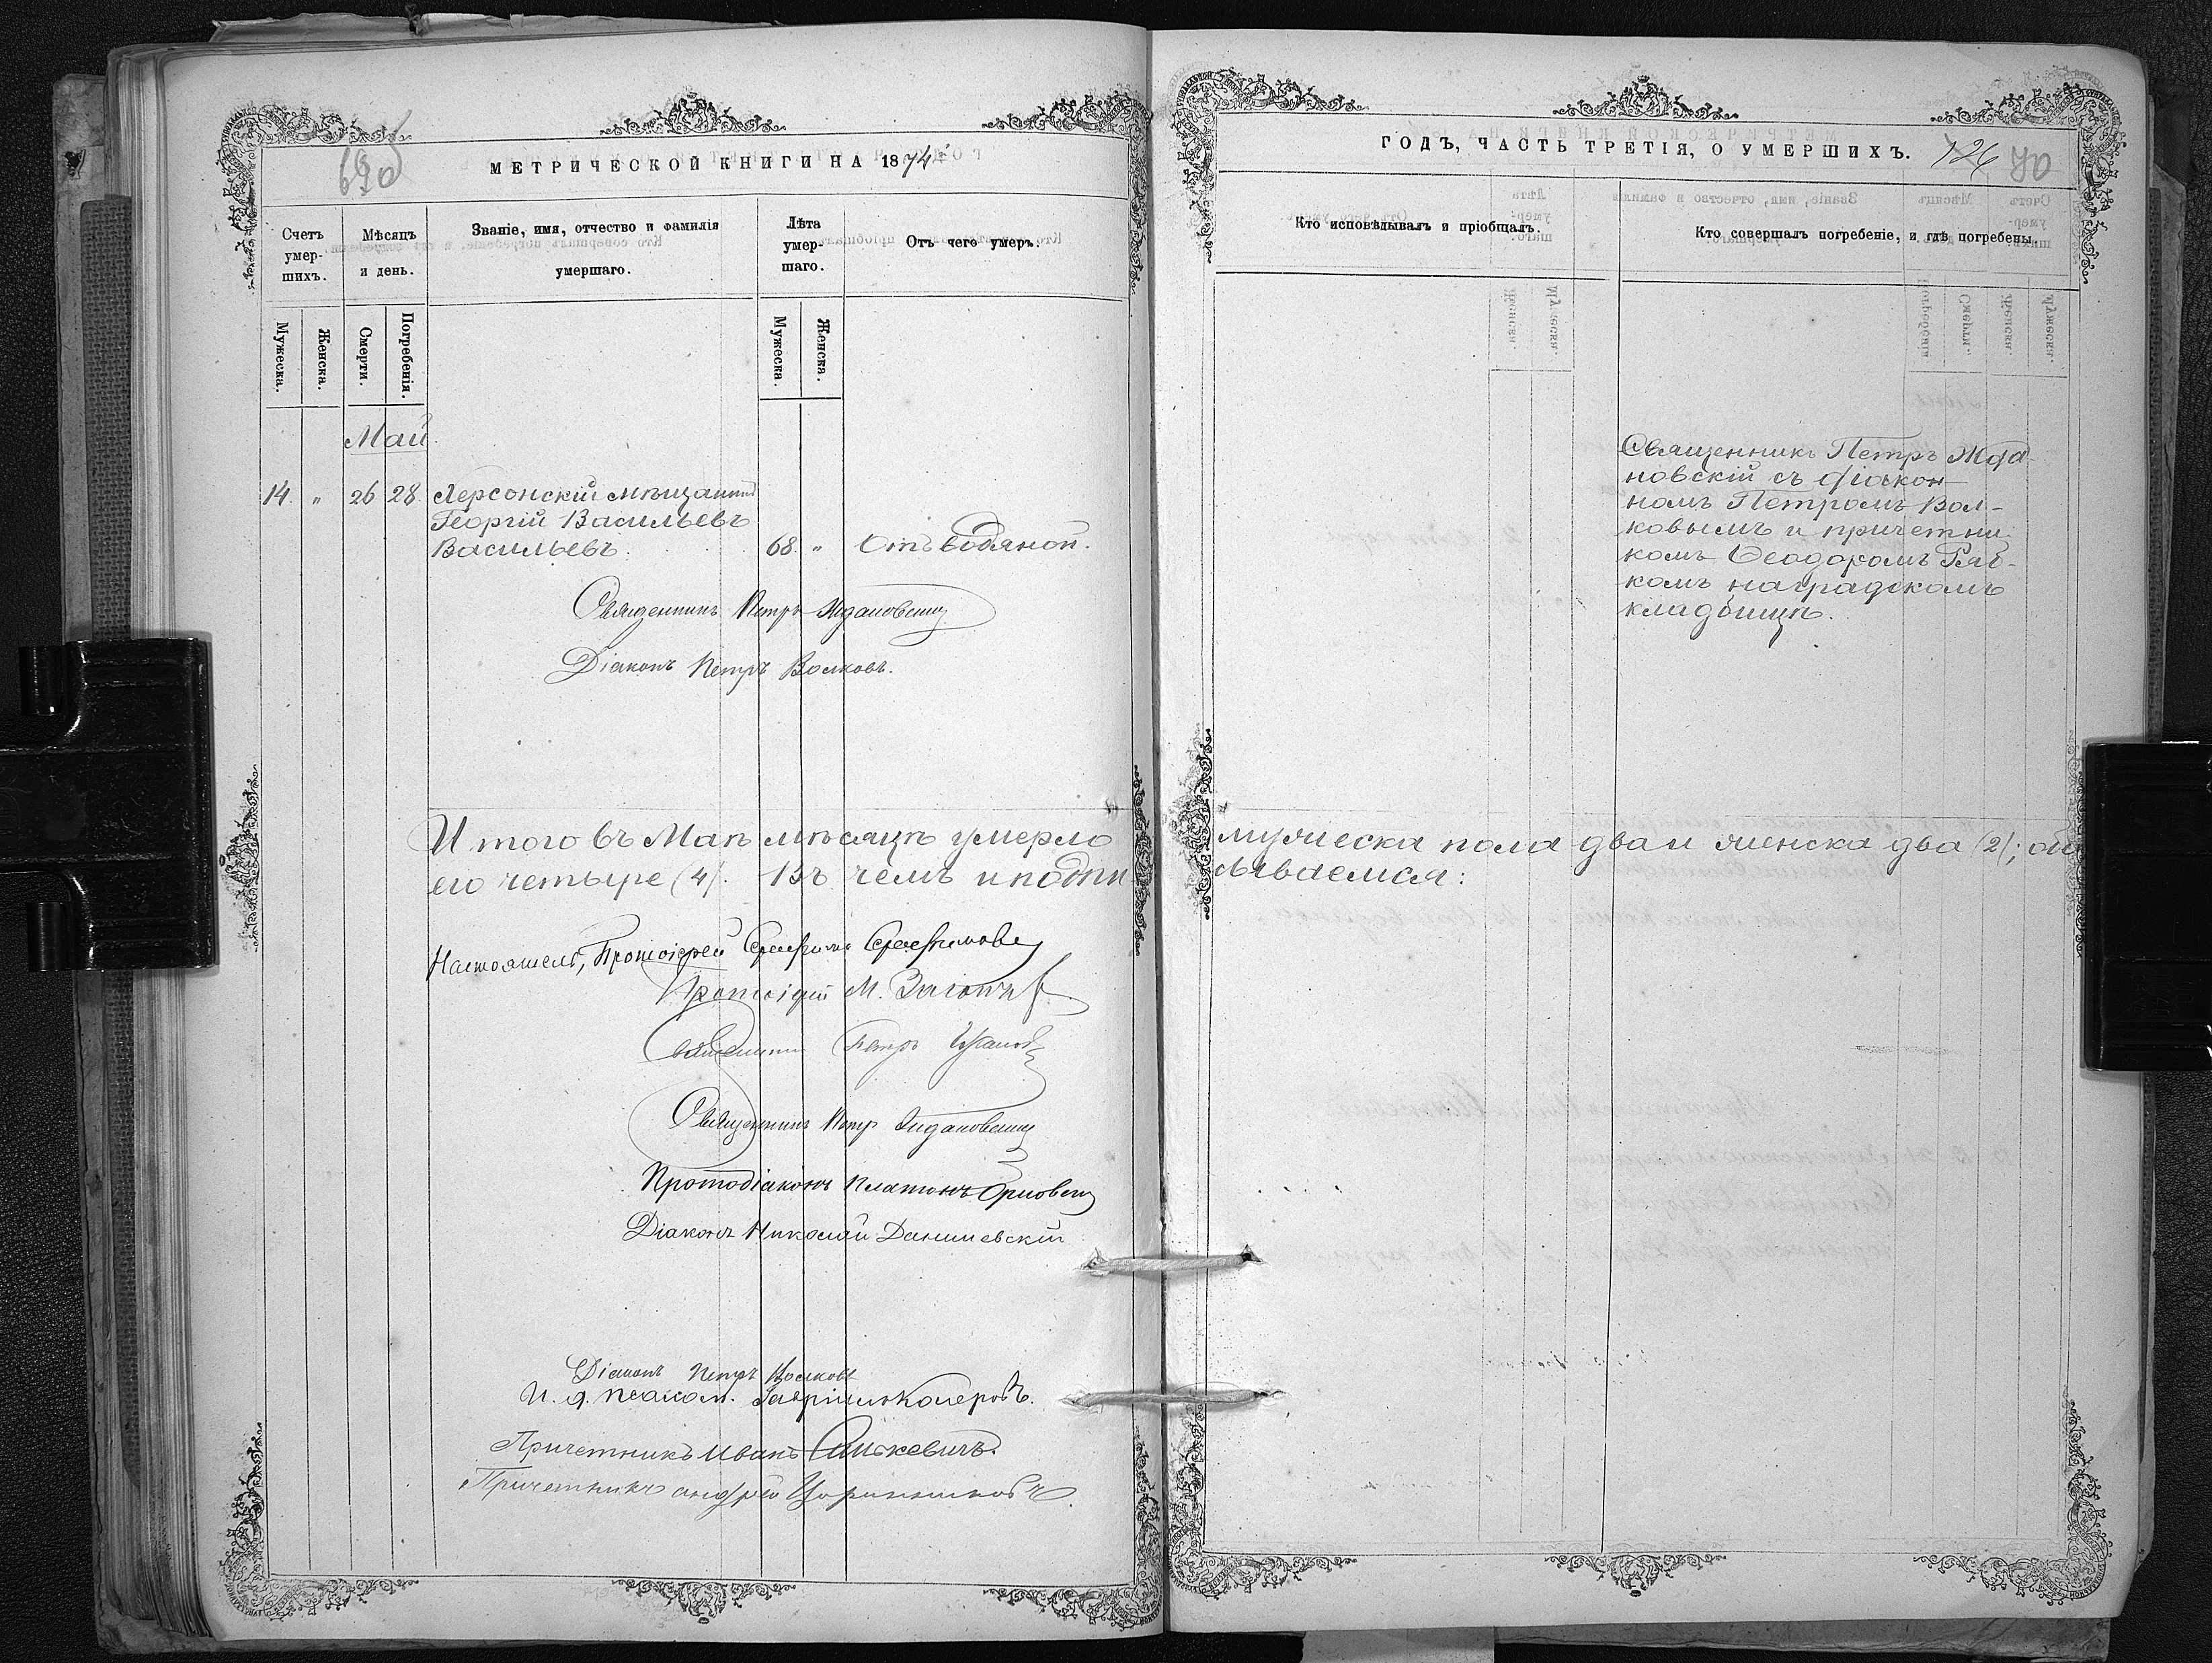 МЕТРИЧЕСКОЙ КНИГИ НА 1874
Счетъ умер- шихъ.
Мѣсяцъ и день.
Званіе, имя, отчество и фамилія умершаго.
Лѣта умер- шаго.
Отъ чего умеръ.
Мужеска.
Женска.
Смерти.
Погребенія.
Мужеска.
Женска.
Май.
14. " 26 28. Херсонскій мѣщанинъ
Георгій Васильевъ
Васильевъ. 68. " Отъ водяной.
Священникъ Петръ Ждановскій
Діаконъ Петръ Волковъ.
Итого въ Маѣ мѣсяцѣ умерло
его четыре (4). Въ чемъ и подпи
Настоятель, Протоіерей Серафимъ Серафимовъ
Протоіерей М.
Священникъ Петръ
Священникъ Петръ Ждановскій
Протодіаконъ Платонъ Орловскій
Діаконъ Николай Данилевскій
Діаконъ Петръ Волковъ
И. д. псалом. Гавріилъ
Причетникъ Иванъ Синькевичъ.
Причетникъ Андрей
ГОДЪ, ЧАСТЬ ТРЕТІЯ, О УМЕРШИХЪ. 126
Кто исповѣдывалъ и пріобщалъ.
Кто совершалъ погребеніе, и гдѣ погребены
Священникъ Петръ Жда
новскій съ діакон
номъ Петромъ Вол-
ковымъ и причетни
комъ Ѳеодоромъ Ряб-
комъ на градскомъ
кладбищѣ.
мужеска пола два и женска два (2); обо
сываемся: